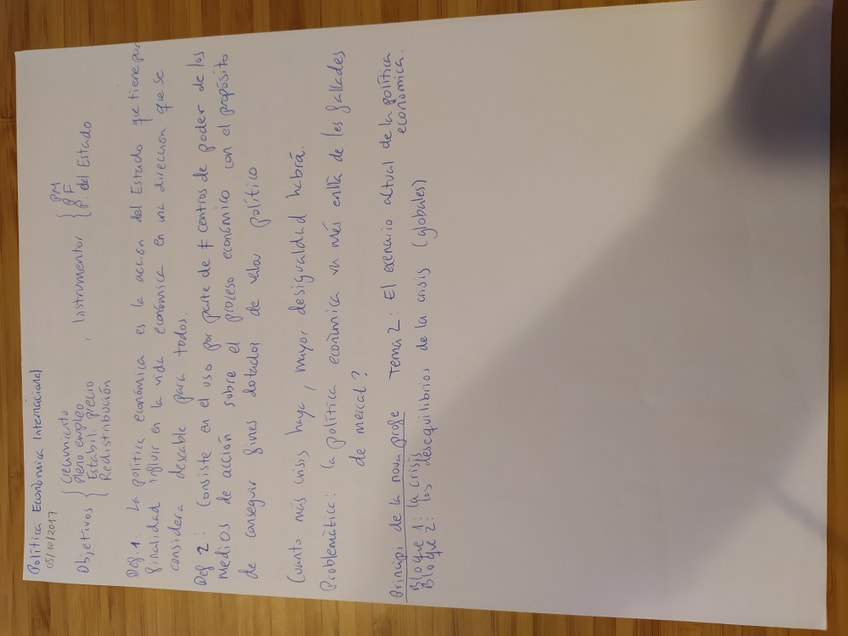 Política Económica Internacional
05/10/2017
Objetivos { Crecimiento
Pleno empleo
Estabil. precio
Redistribución
, Instrumentos { PM
PF
P. del Estado
Def 1: La política económica es la acción del Estado que tiene por
finalidad influir en la vida económica en una dirección que se
considera deseable para todos.
Def 2: Consiste en el uso por parte de ≠ centros de poder de los
medios de acción sobre el proceso económico con el propósito
de conseguir fines dotados de valor político
Cuanto más crisis haya, mayor desigualdad habrá.
Problemàtica: la política econòmica va més enllà de les fallades
de mercat?
Principi de la nova profe Tema 2: El escenario actual de la política
económica.
Bloque 1: la crisis
Bloque 2: los desequilibrios de la crisis (globales)